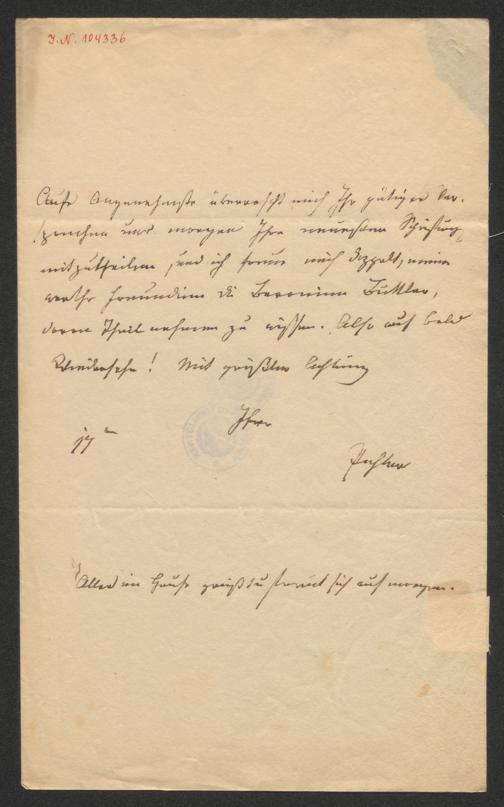 J. N. 104336
Aufs Angenehmste überrascht mich Ihr gütiges Ver-
sprechen uns morgen Ihre neuesten Schöpfung
mitzutheilen, und ich freue mich doppelt, meine
werthe Freundin die Baroninn
daran Theil nehmen zu wissen. Also auf bald
Wiedersehn! Mit größter Achtung
Ihre
Pichler
Alles im Hause grüßt u freut sich auf morgen.